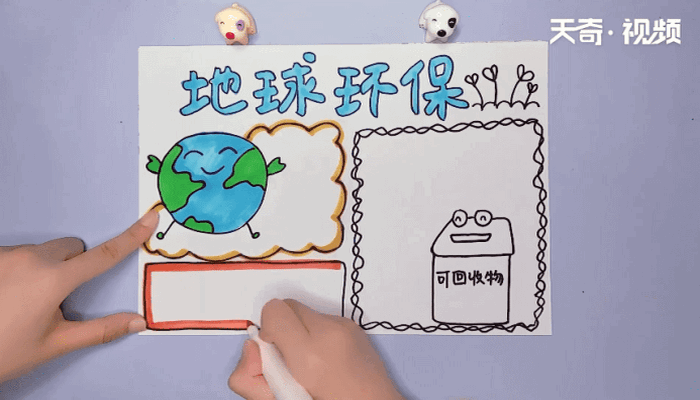 天奇·视频
地球环保
可回收物